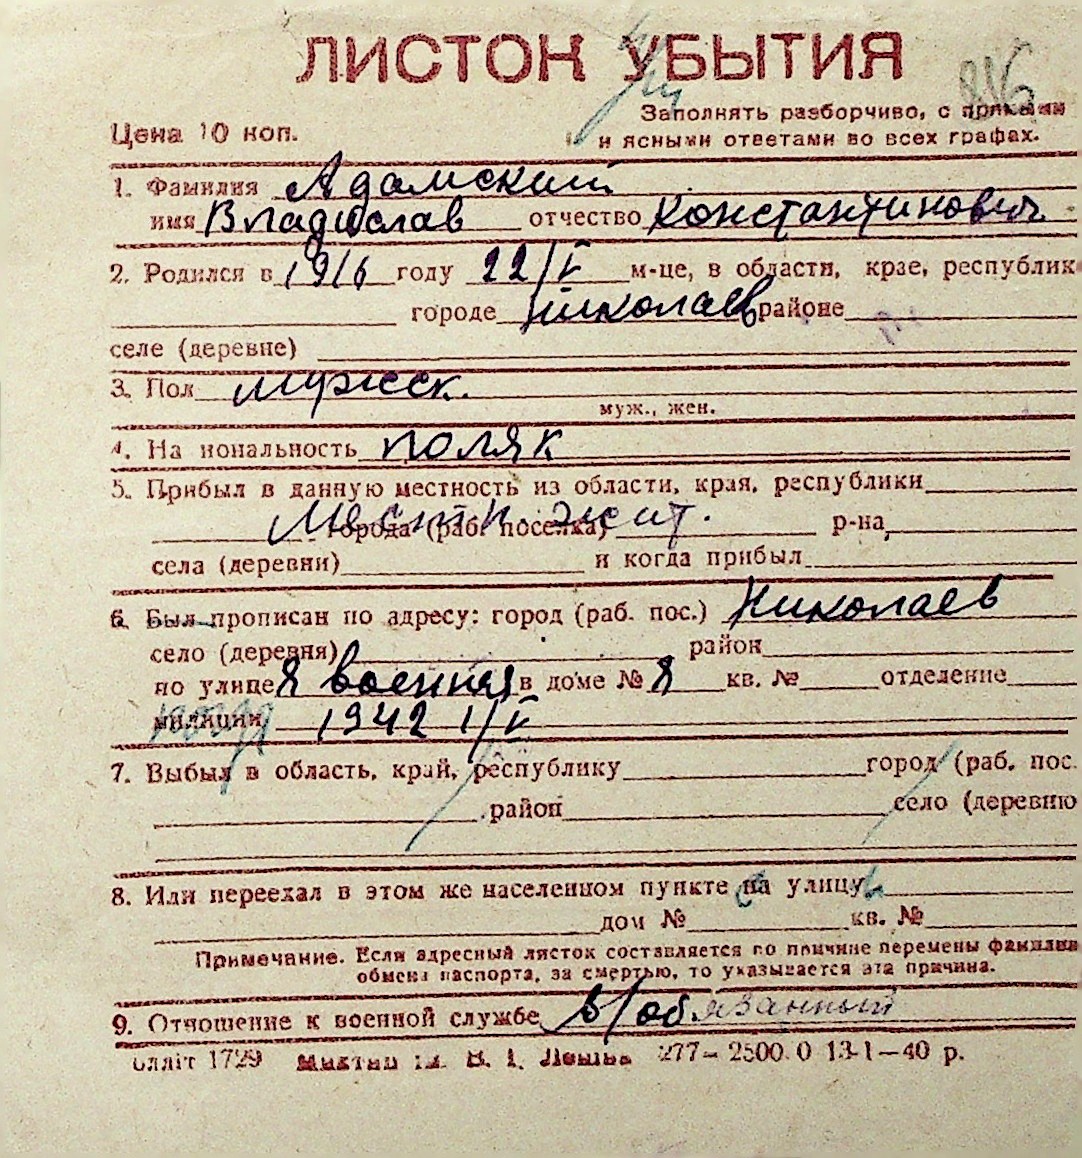 ЛИСТОК УБЫТИЯ
816
Цена 10 коп.
Заполнять разборчиво, с прямыми
и ясными ответами во всех графах.
1. Фамилия Адамский
имя Владислав отчество Константинович
2. Родился в 1916 году 22/V м-це, в области, крае, республик
городе Николаев районе
селе (деревне)
3. Пол мужск.
муж., жен.
4. На иональность поляк
5. Прибыл в данную местность из области, края, республики
Местн. жит.
города (раб. поселка) р-на
села (деревни) и когда прибыл
6. Был прописан по адресу: город (раб. пос.) Николаев
село (деревня) район
по улице 8 военная в доме № 8 кв. № отделение
милиции 1942 1/V
7. Выбыл в область, край, республику город (раб. пос.
район село (деревню
8. Или переехал в этом же населенном пункте на улицу
дом № кв. №
Примечание. Если адресный листок составляется по причине перемены фамилии
обмена паспорта, за смертью, то указывается эта причина.
9. Отношение к военной службе в/обязанный
1729 277—2500.0 13-1—40 р.